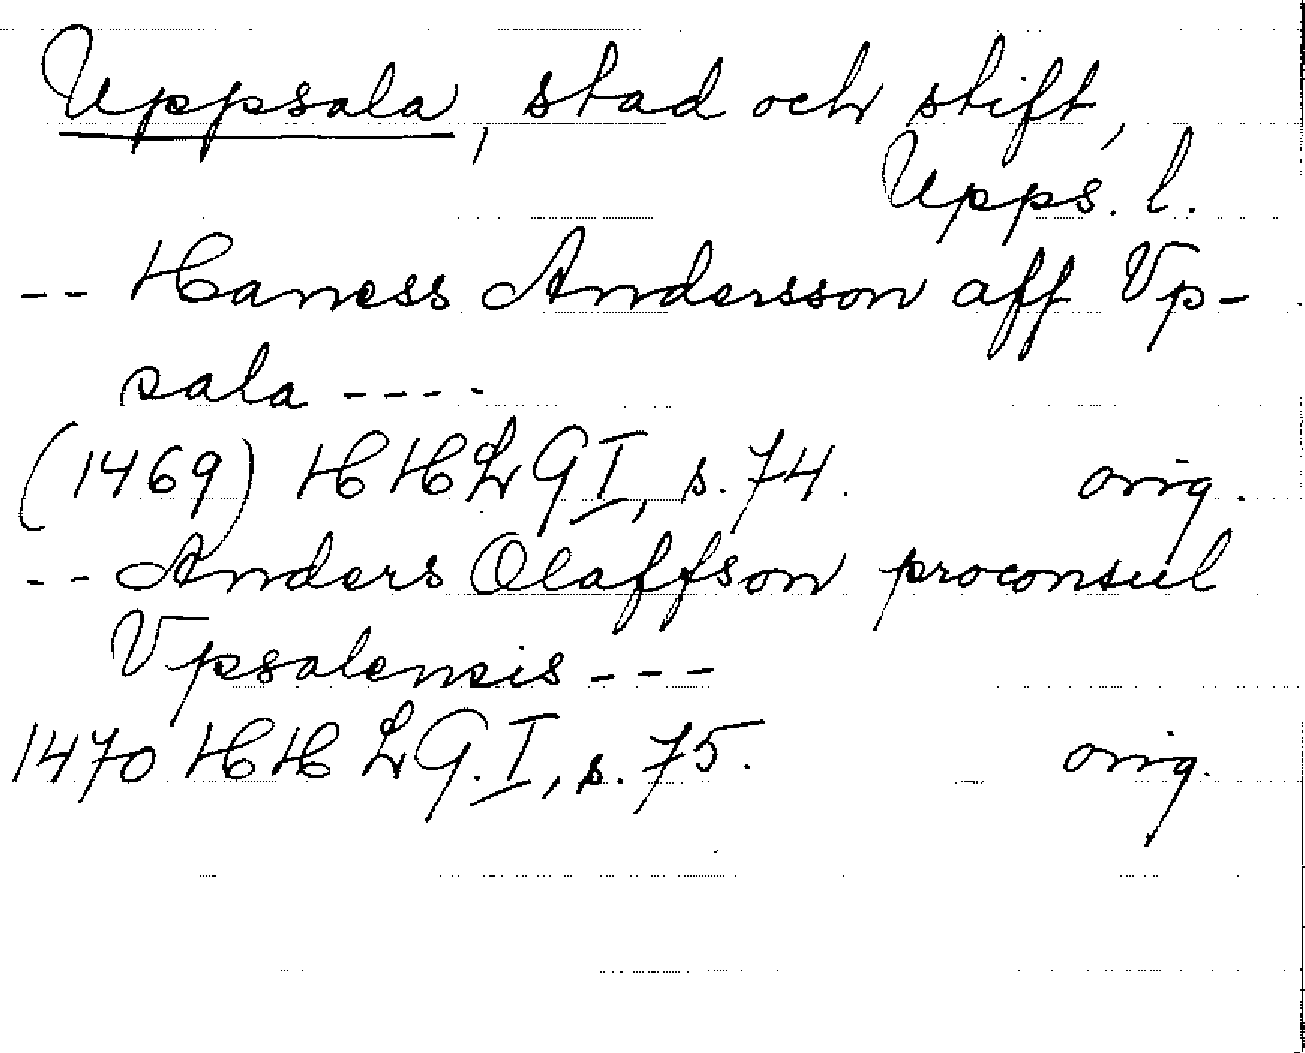 Uppsala, stad och stift,
Upps. l.
-- Haness Andersson aff Vp-
sala ----
(1469) HHLG I, s. 74. orig.
-- Anders Olaffson proconsul
Vpsalensis ---
1470 HHLG. I, s. 75. orig.